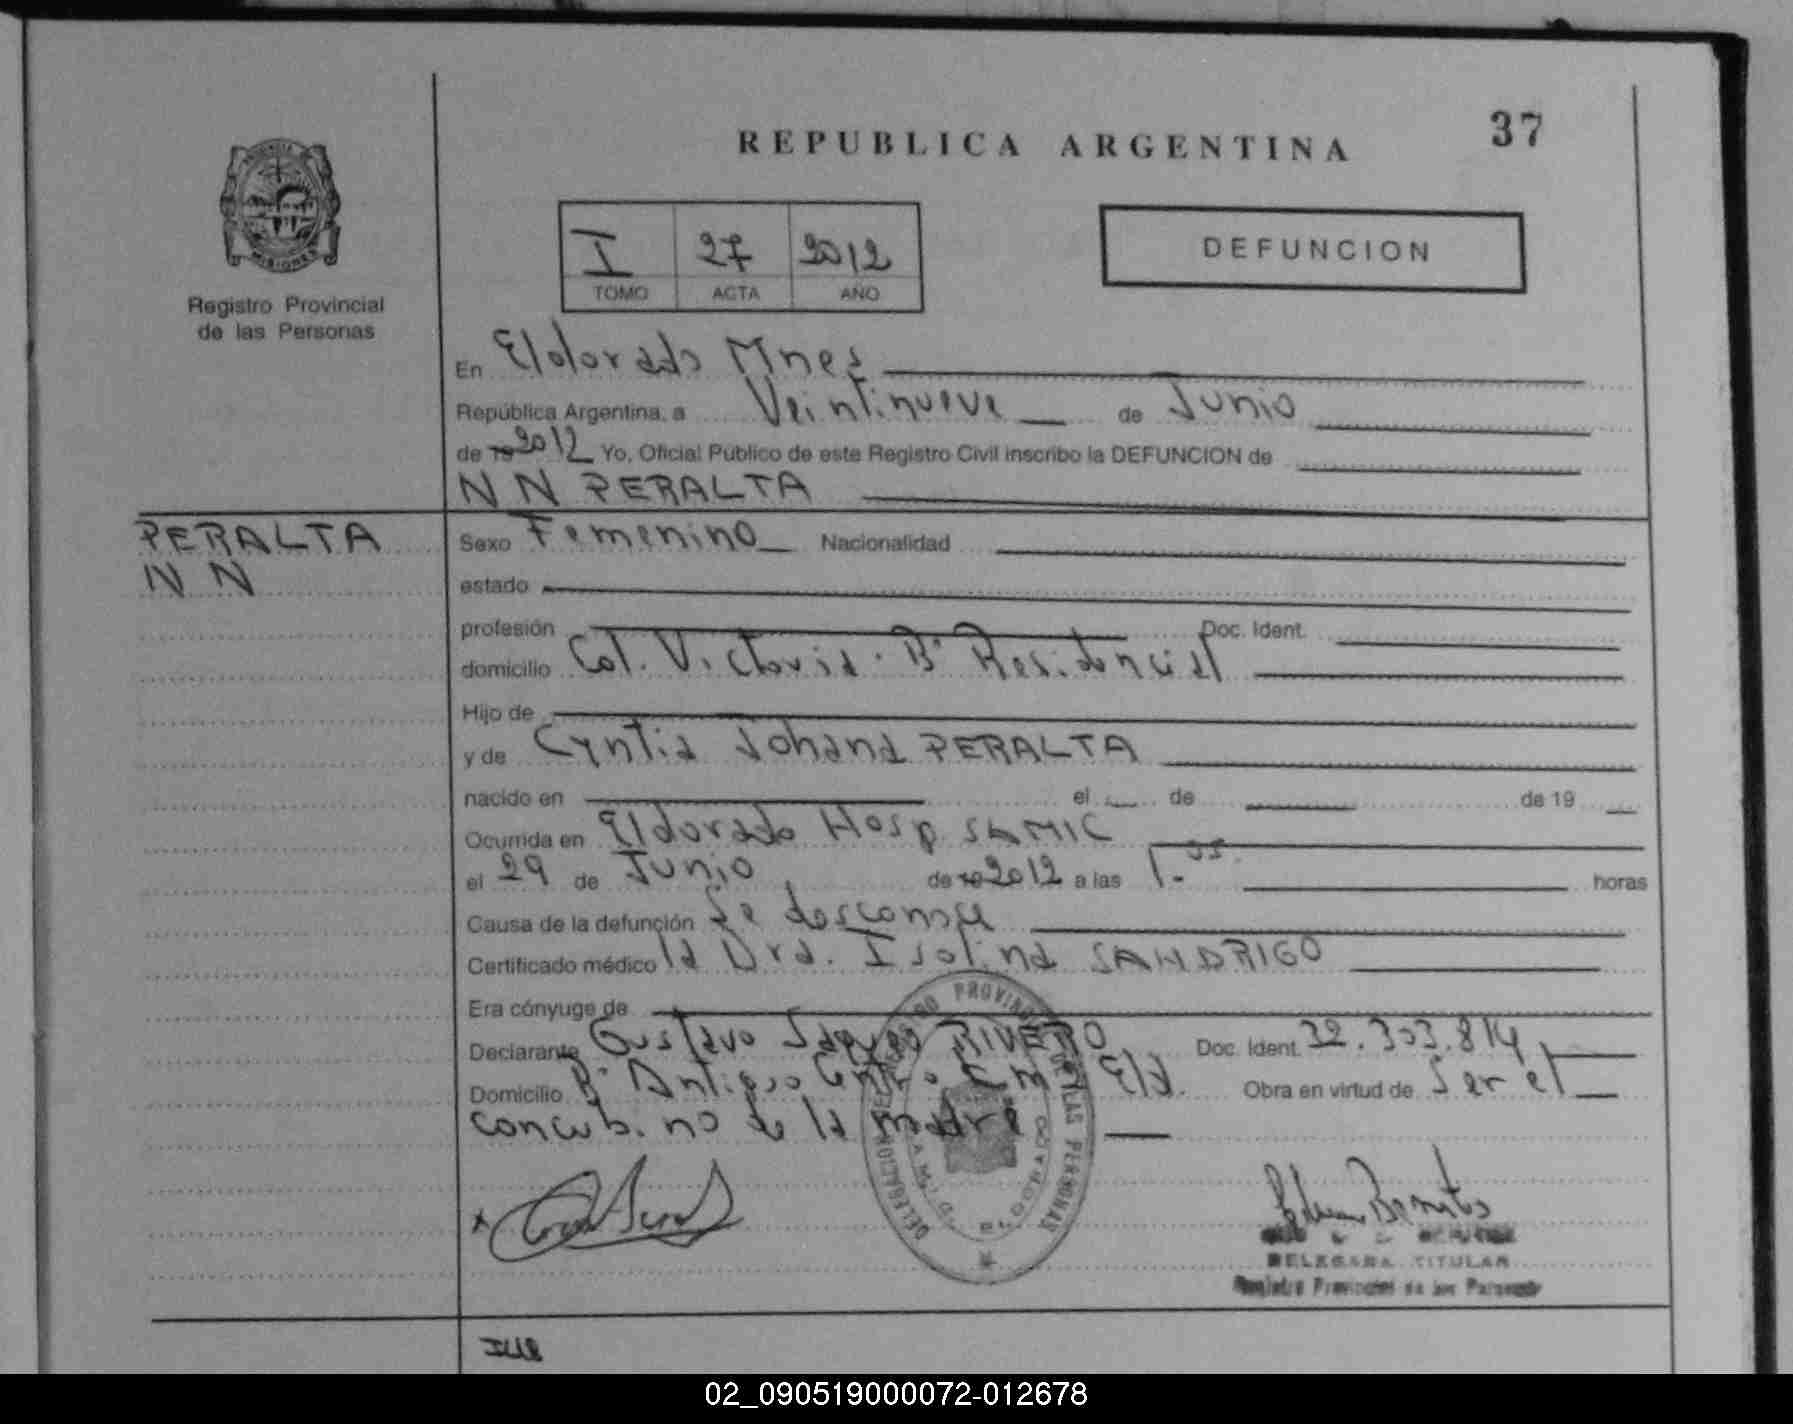 REPUBLICA ARGENTINA
37
MISIONES
Registro Provincial
de las Personas
I 27 2012
TOMO ACTA AÑO
DEFUNCION
En Eldorado Mnes
República Argentina, a Veintinueve de Junio
de 19 2012 Yo, Oficial Público de este Registro Civil inscribo la DEFUNCION de
N N PERALTA
PERALTA
N N
Sexo Femenino Nacionalidad
estado
profesión Doc. Ident.
domicilio Col. Victoria. B° Residencial
Hijo de
y de Cyntia Johana PERALTA
nacido en el de de 19
Ocurrida en Eldorado Hosp. SAMIC
el 29 de Junio de 19 2012 a las 1.05 horas
Causa de la defunción Se desconoce
Certificado médico la Dra. Isolina SANDRIGO
Era cónyuge de
Declarante Gustavo RIVERO Doc. Ident. 32.303.814
Domicilio B° Antiguo Eld. Obra en virtud de Ser el
concubino de la madre
DELEGADA TITULAR
Registro Provincial de las Personas
02_090519000072-012678